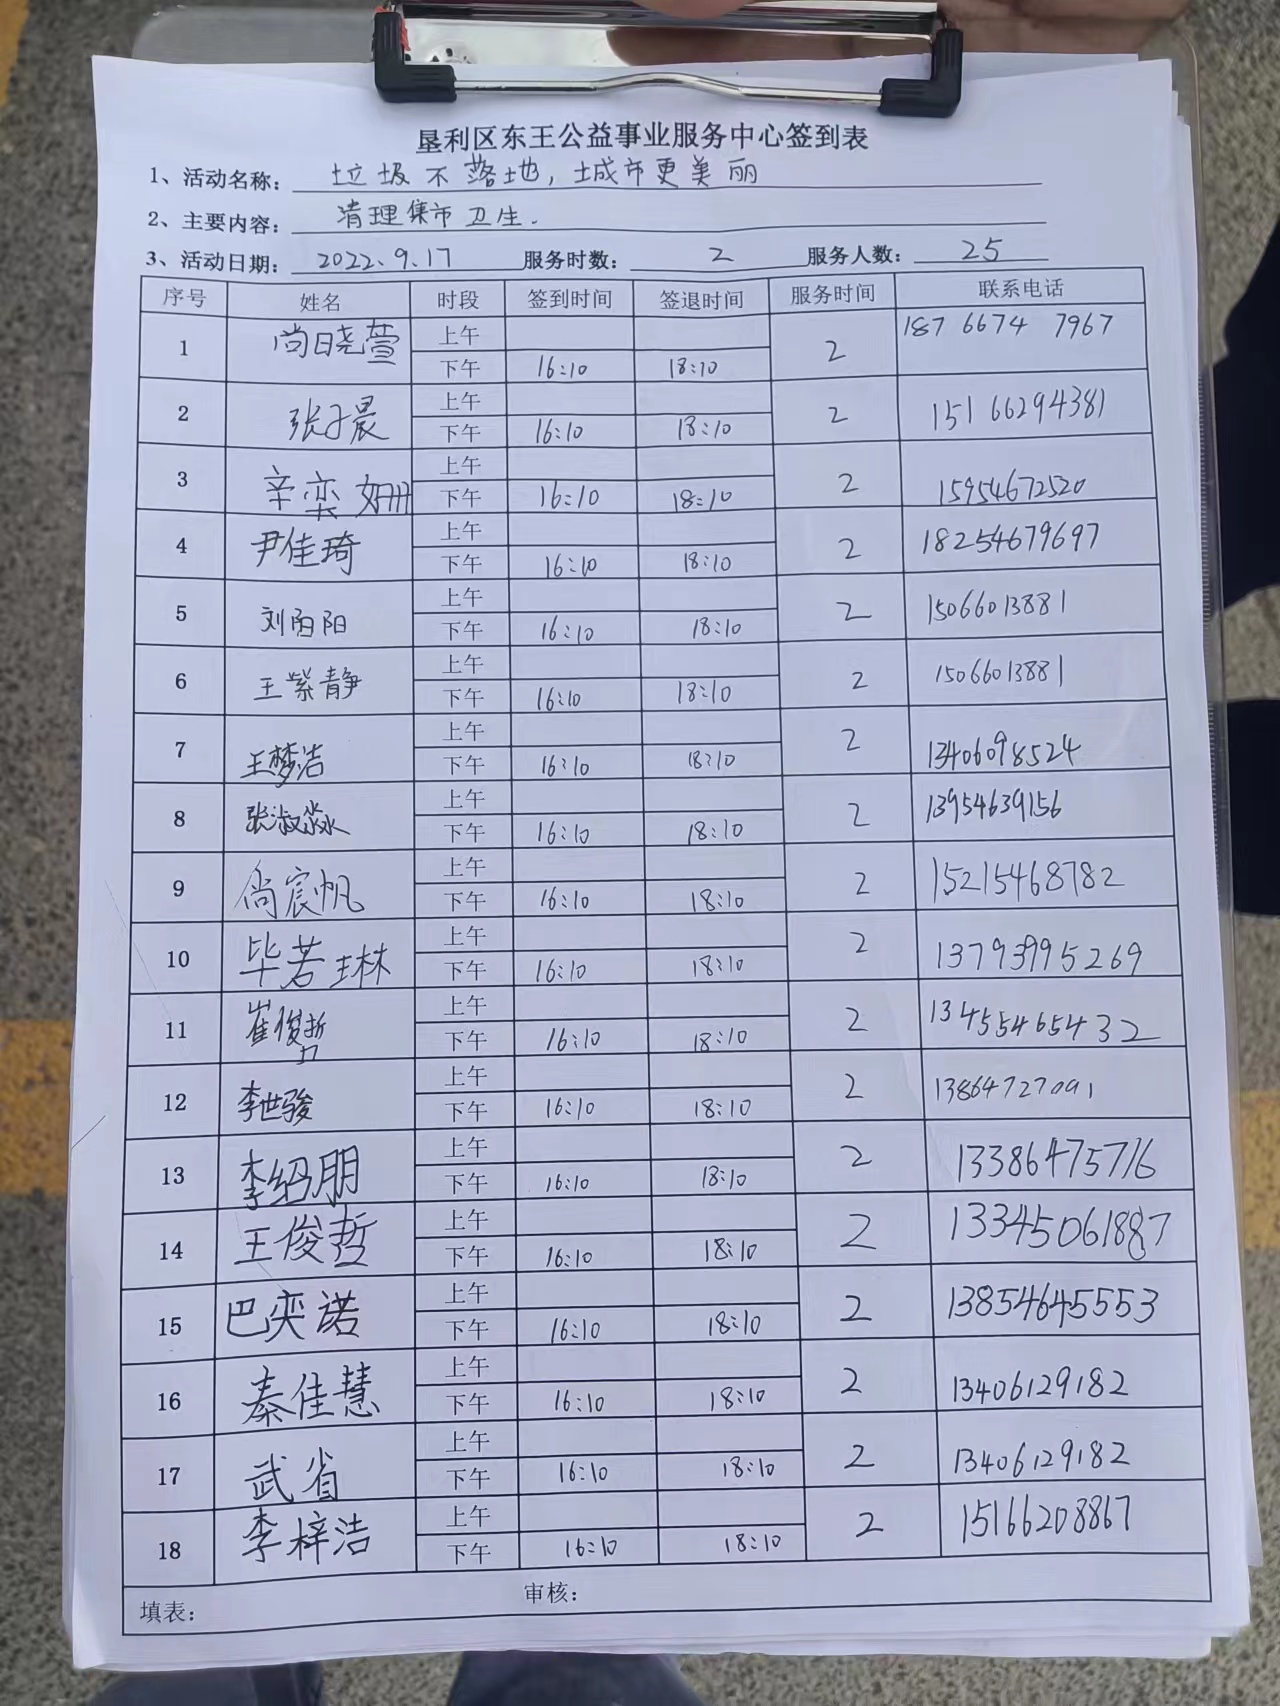 垦利区东王公益事业服务中心签到表
1、活动名称: 垃圾不落地,城市更美丽
2、主要内容: 清理集市卫生.
3、活动日期: 2022.9.17 服务时数: 2 服务人数: 25
序号 姓名 时段 签到时间 签退时间 服务时间 联系电话
1 尚晓萱 上午 2 187 6674 7967
下午 16:10 18:10
2 张子晨 上午 2 15166294381
下午 16:10 18:10
3 辛栾姗 上午 2 15954672520
下午 16:10 18:10
4 尹佳琦 上午 2 18254679697
下午 16:10 18:10
5 刘阳 上午 2 15066013881
下午 16:10 18:10
6 王紫静 上午 2 15066013881
下午 16:10 18:10
7 王梦洁 上午 2 13406098524
下午 16:10 18:10
8 张淑淼 上午 2 13954639156
下午 16:10 18:10
9 尚宸帆 上午 2 15215468782
下午 16:10 18:10
10 毕若琳 上午 2 13793995269
下午 16:10 18:10
11 崔俊哲 上午 2 13455465432
下午 16:10 18:10
12 李世骏 上午 2 13864727091
下午 16:10 18:10
13 李绍朋 上午 2 13386475716
下午 16:10 18:10
14 王俊哲 上午 2 13345061887
下午 16:10 18:10
15 巴奕诺 上午 2 13854645553
下午 16:10 18:10
16 秦佳慧 上午 2 13406129182
下午 16:10 18:10
17 武省 上午 2 13406129182
下午 16:10 18:10
18 李梓洁 上午 2 15166208867
下午 16:10 18:10
填表: 审核: